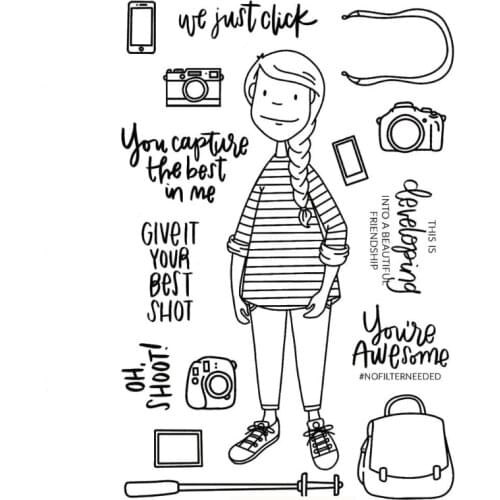 we just click
You capture
the best
in me
GIVE IT
YOUR
BEST
SHOT
OH,
SHOOT!
THIS IS
developing
INTO A BEAUTIFUL
FRIENDSHIP
You're
Awesome
#NOFILTERNEEDED